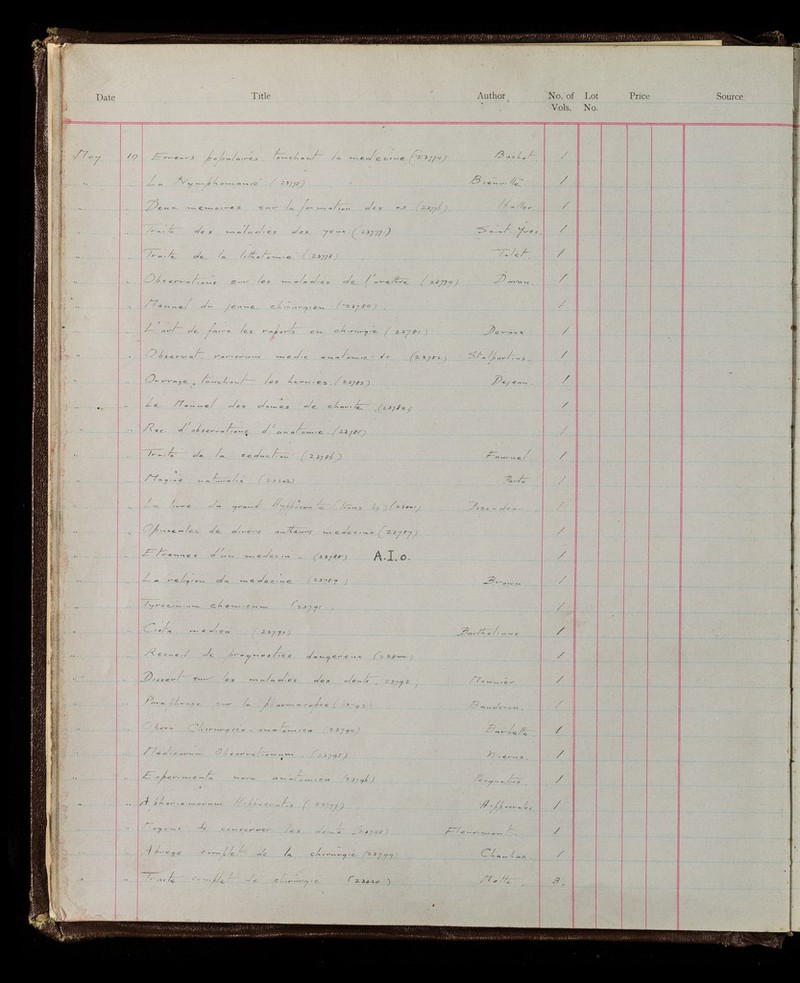 Date Title Author No. of Vols. Lot No. Price Source
May 10 Erreurs populaires touchant la medecine (22774) Bachot 1
" " La Nymphomanie (22775) Bienville 1
" " Deux memoires sur la formation des os (22776) Haller 1
" " Traite des maladies des yeux (22777) Saint-Yves 1
" " Traite de la lithotomie (22778) Tolet 1
" " Observations sur les maladies de l'urethre (22779) Daran 1
" " Manuel du jeune chirurgien (22780) 1
" " L'art de faire les raports en chirurgie (22781) Devaux 1
" " Observat. rariorum medic anatomic &c (22782) Stalpartius 1
" " Ouvrage touchant les hernies (22783) Dejean 1
" " Le Manuel des dames de charite 1
" " Rec d'observations d'anatomie (22785) 1
" " Traite de la seduction (22786) Fournel 1
" " Magiae naturalis Porta 1
" " La livre du grand Hyppocrate 1
" " Opuscules de divers autheurs medecins (22787) 1
" " Etrennes d'un medecin (22788) A.I.o. 1
" " La religion du medecine (22789) Brown 1
" " Tyrocinium chemicum (22791) 1
" " Cista medica (22790) Bartholinus 1
" " Recueil de prognostics dangereux 1
" " Dissert sur les maladies des dents 22792 Mounier 1
" " Paraphrase sur la pharmacopee Bauderon 1
" " Opera Chirurgica-anatomica (22794) Barbette 1
" " Medicarum Observationum (22795) 1
" " Experimenta nova anatomica (22796) Pecquetus 1
" " Aphorismorum Hippocratis Hippocrates 1
" " Moyens de conserver les dents (22798) 1
" " Abrege complet de la chirurgie (22799) Chauliac 1
" " Traite complet de chirurgie Motte 3